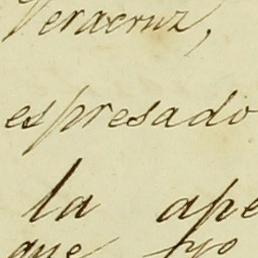 Veracruz,
espresado
la ape
que yo